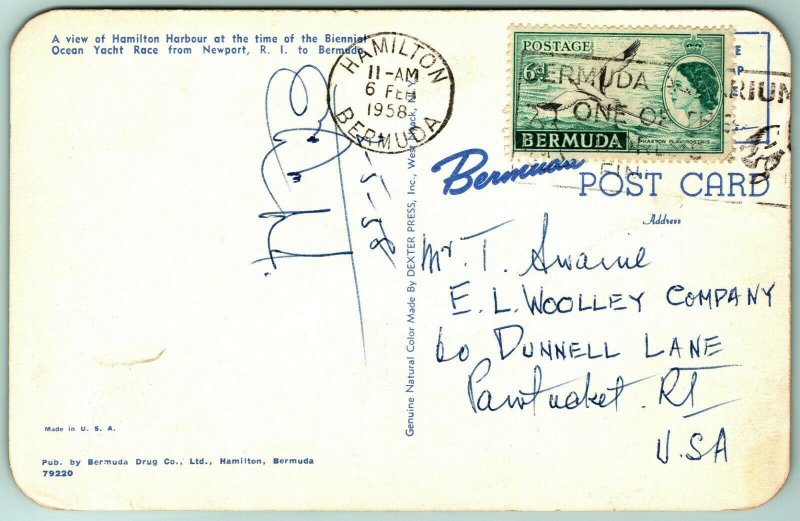 A view of Hamilton Harbour at the time of the Biennial
Ocean Yacht Race from Newport, R. I. to Bermuda
HAMILTON
11-AM
6 FEB
1958
BERMUDA
POSTAGE
6d
BERMUDA
PHAETON FLAVIROSTRIS
BERMUDA
ONE OF
Bermudan
POST CARD
Address
Mr. T.
E. L. WOOLLEY COMPANY
60 DUNNELL LANE
Pawtucket. RI
U.SA
Genuine Natural Color Made By DEXTER PRESS, Inc., West Nyack, N.Y.
Made in U. S. A.
Pub. by Bermuda Drug Co., Ltd., Hamilton, Bermuda
79220